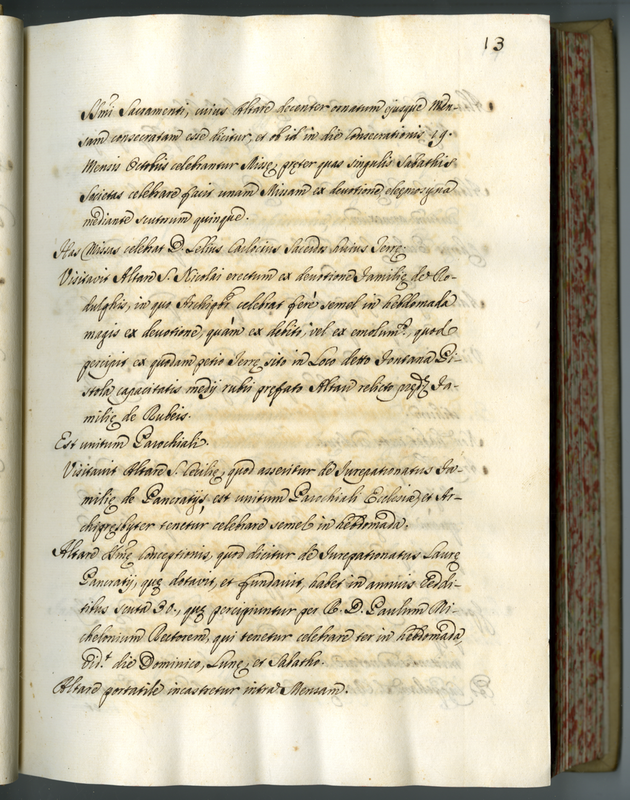 13
SSm̃i Sacramenti, cuius Altare decenter ornatum eiusque Men-
sam consecratam esse dicitur, et ob id in die Consecrationis 19.
Mensis Octobris celebrantur Missę pręter quas singulis Sabathis
Societas celebrare facit unam Missam ex devotione elęmosyna
mediante scutrum quinque.
Has Missas celebrat D. Lellius Caelocius Sacerdos huius Terrę.
Visitavit Altare S. Nicolai erectum ex devotione Familię de Ro-
dulphis, in quo Archipr̃ celebrat ferè semel in hebdomada
magis ex devotione, quàm ex debito, vel ex emolum.º, quod
percipit ex quodam petio Terrę sito in Loco detto Fontana Pi-
stola capacitatis medij rubii prefato Altari relicto prędę Fa-
milię de Rubeis.
Est unitum Parochiali.
Visitavit Altare S. Cecilię, quod asseritur de Iurepationatus Fa-
milię de Pancratijs est unitum Parochiali Ecclesię, et Ar-
chipresbyter tenetur celebrare semel in hebdomada.
Altare Conceptionis, quod dicitur de Iurepationatus Laurę
Pancratij, quę dotavit, et fundavit, habet in annuis reddi-
tibus scuta 30., quę percipiuntur per R. D. Paulum Mi-
chelonium Rectorem, qui tenetur celebrare ter in hebdomada
vid.t die Dominico, Lunę, et Sabatho.
Altare portatile incastretur intra Mensam.